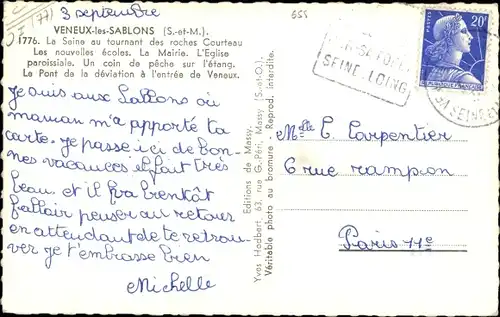 (77)
3 septembre
555
VENEUX-les-SABLONS (S.-et-M.).
1776. La Seine au tournant des roches Courteau
Les nouvelles écoles. La Mairie. L'Eglise
paroissiale. Un coin de pêche sur l'étang.
Le Pont de la déviation à l'entrée de Veneux.
Je suis aux Sablons où
maman m'a apporté ta
carte. Je passe ici de bon-
nes vacances il fait très
beau. et il va bientôt
falloir penser au retour
en attendant de te retrou-
ver je t'embrasse bien
Michelle
Editions de Massy.
Yves Hadbert, 63, rue G.-Péri, Massy (S.-et-O.).
Véritable photo au bromure - Reprod. interdite.
SEINE-LOING
POSTES
20F
Mlle C. Carpentier
6 rue rampon
Paris 11e